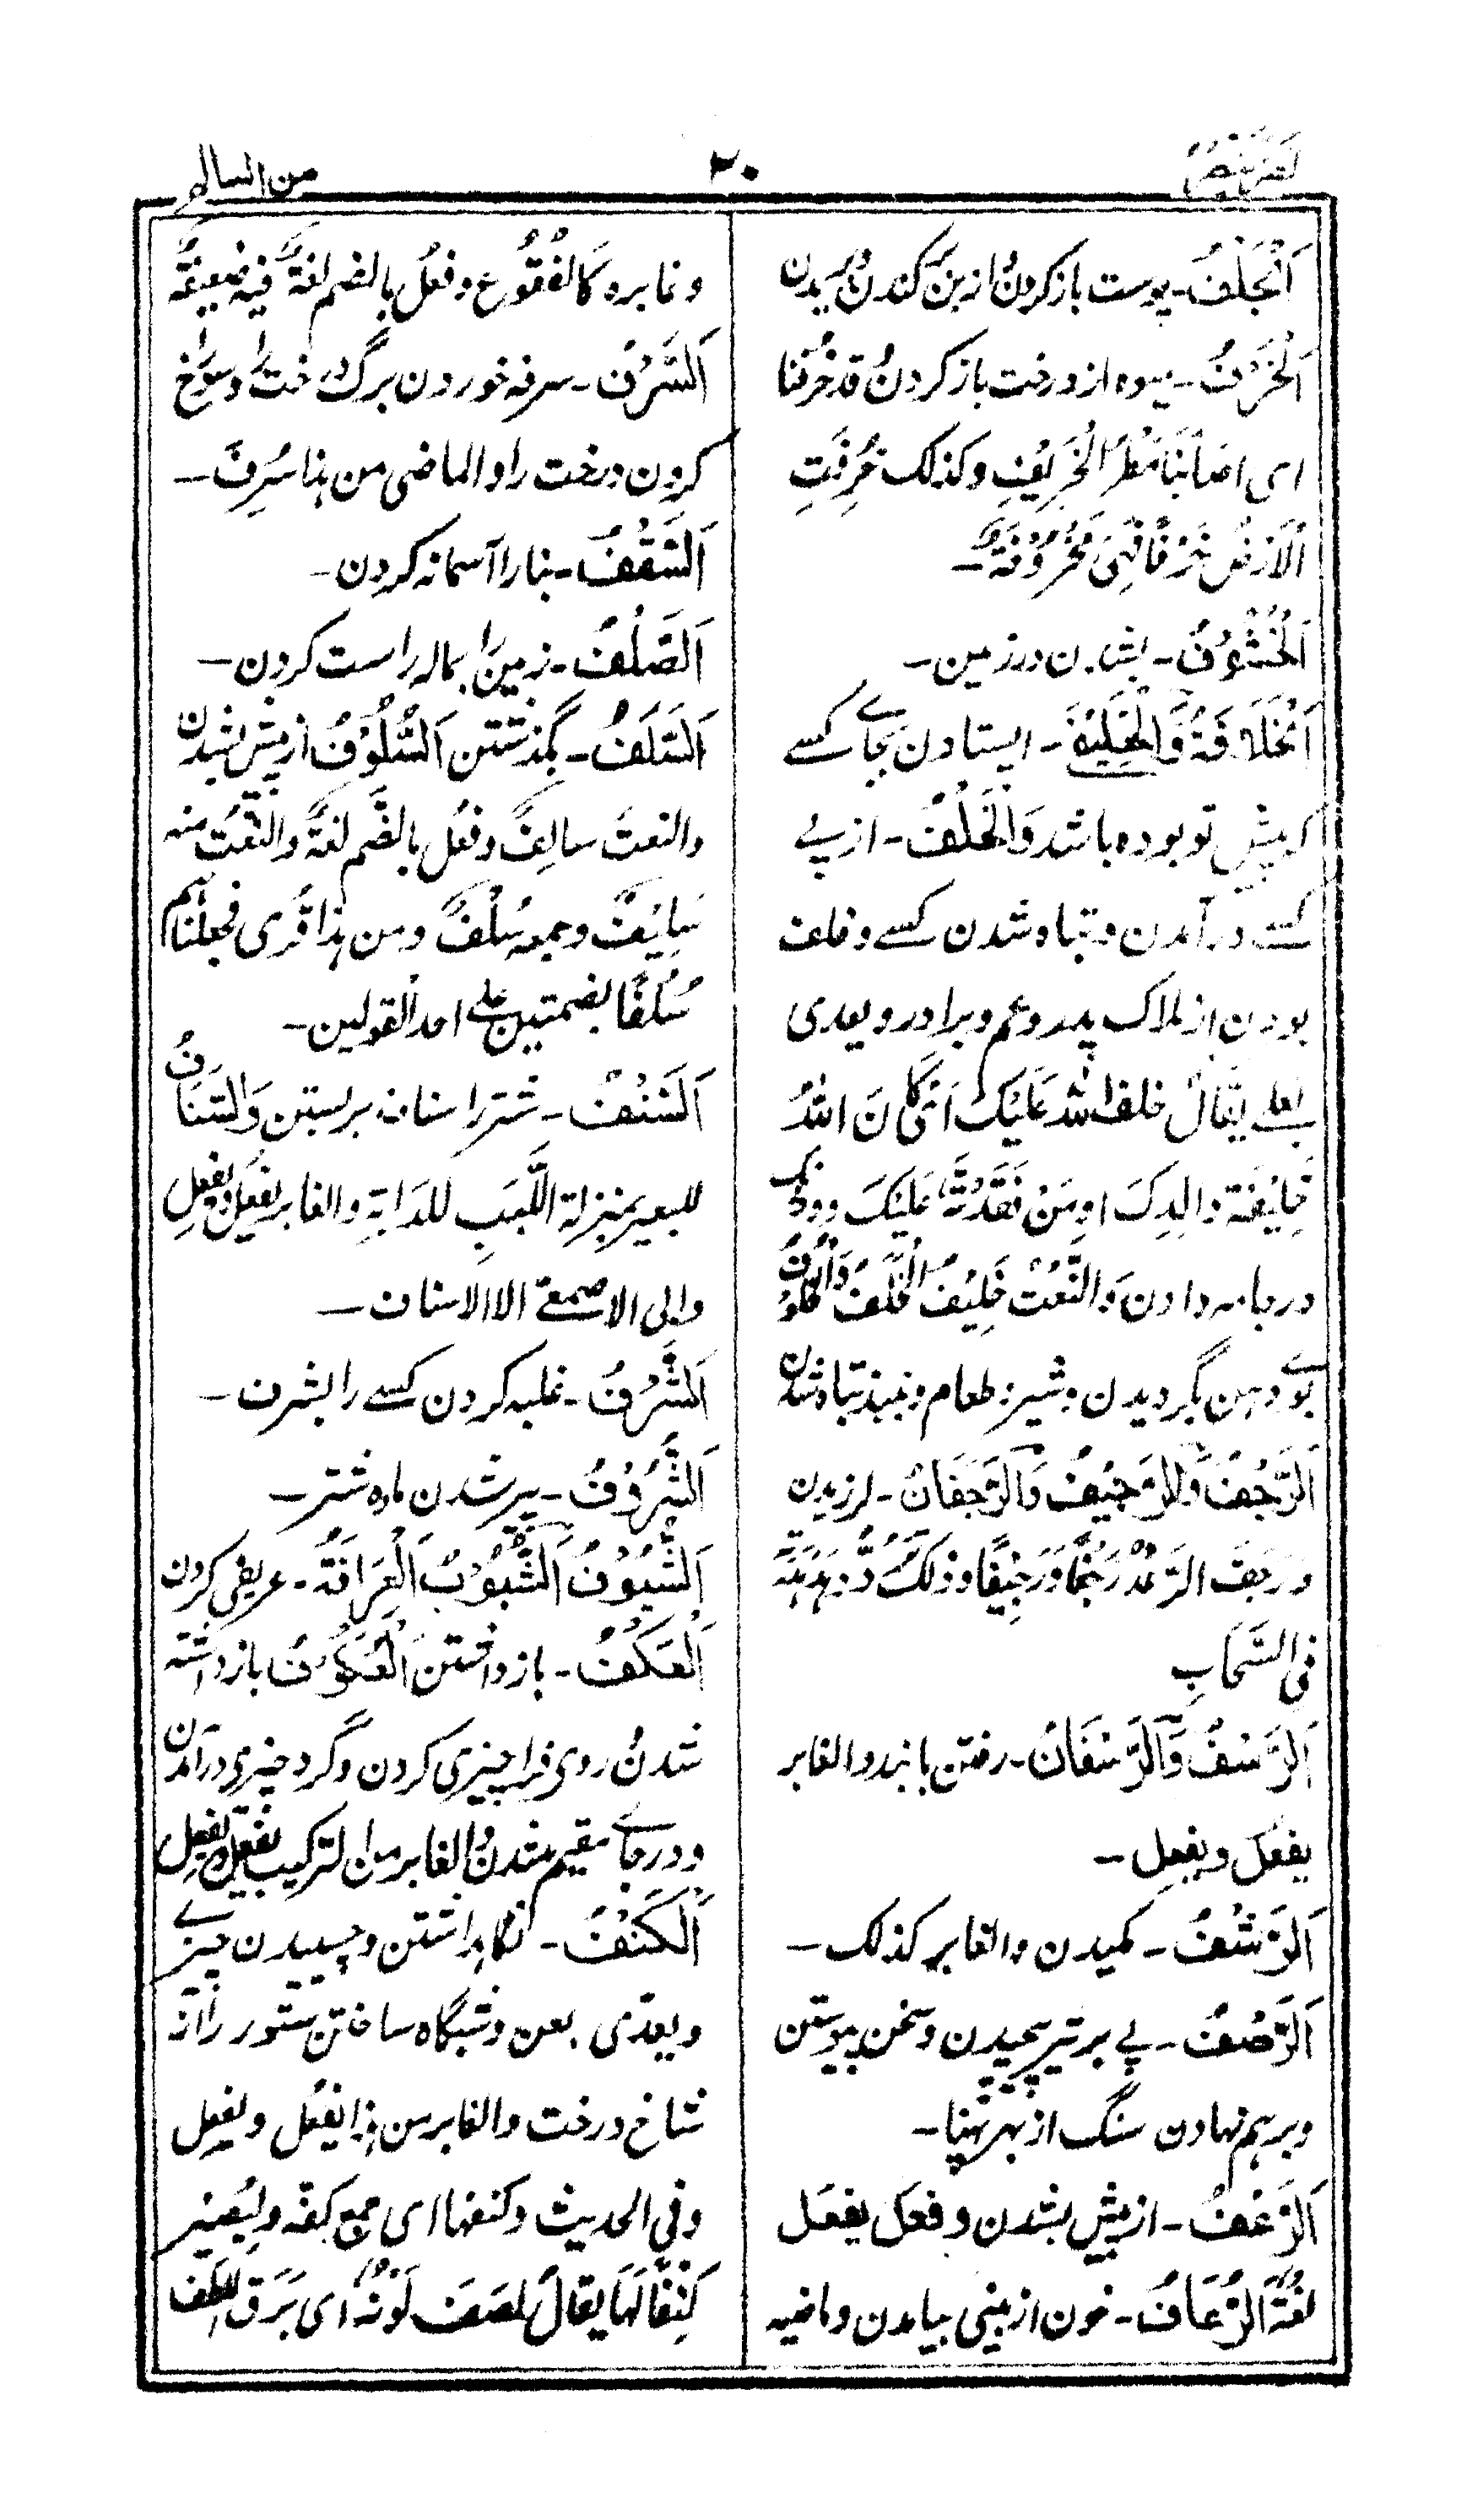 نصر ينصر
۳۰
من السالم
اَلْجَلْفُ - پوست باز کردن و از بن برکندن و بریدن
اَلْخَرْفُ - میوه از درخت باز کردن و قد خُرِفْنَا
ای اصابَنَا مَطَرُ الْخَرِیْفِ وکذلک خُرِفَتِ
الْاَرْضُ خَرْفًا فَهِیَ مَخْرُوْفَةٌ -
اَلْخُشُوْفُ - بشدن در زمین -
اَلْخِلَافَةُ وَالْخِلِّیْفٰی - ایستادن بجاے کسے
که پیش تو بوده باشد وَالْخَلْفُ - از پے
کسے در آمدن و تباه شدن کسے و خلف
بودن از هلاک پدر و عم و برادر و یعدی
بعلے یقال خلف الله عَلَیْکَ ای کَانَ اللهُ
خَلِیْفَةَ والِدِکَ او مَنْ فَقَدْتَّهٗ عَلَیْکَ و وژنگ
در جامه دادن وَالنَّعْتُ خَلِیْفٌ الْخَلْفُ وَالْخُلُوْفُ
بوے دهن بگردیدن و شیر و طعام و نبیذ تباه شدن
اَلرَّجْفُ وَالرَّجِیْفُ وَالرَّجَفَانُ - لرزیدن
و رَجَفَ الرَّعْدُ رَجْفًا وَرَجِیْفًا و ذلک تَرَدُّدُ هَدْهَدَتِهٖ
فی السَّحَابِ
اَلرَّسْفُ وَالرَّسَفَانُ - رفتن با بند و الغابر
یفعُل و یفعِل -
اَلرَّشْفُ - مکیدن و الغابر کذلک -
اَلرَّصْفُ - پے بر تیر پیچیدن و سخن پیوستن
و بر هم نهادن سنگ از بهر بنا -
اَلرَّعْفُ - از پیش بشدن و فعَل یفعَل
لغةٌ اَلرُّعَافُ - خون از بینی بیامدن و ماضیه
و غابره کَالْفُتُوْعِ و فعُل بالضم لغةٌ فیه ضعیفةٌ
اَلسَّرْفُ - سرفه خوردن برگ درخت را و سوراخ
کردن درخت را و الماضی من هذا سُرِفَ -
اَلسَّقْفُ - بنا را آسمانه کردن -
اَلسَّلْفُ - زمین را بماله راست کردن -
اَلسَّلَفُ - بگذشتن اَلسُّلُوْفُ از پیش بشدن
والنعت سالِفٌ و فعُل بالضَّم لغةٌ والنَّعْتُ منه
سَلِیْفٌ وجمعه سُلُفٌ ومن هذا قُرِی فجعلناهم
سُلُفًا بضمتین علی احد القولین -
اَلسَّنْفُ - شتر را سناف بربستن وَالسِّنَافُ
للبعیر بمنزلة اللَّبَبِ للدابَةِ والغابر یفعُل و یفعِل
وابی الاصمعی الا الاسناف -
اَلشَّرْفُ - غلبه کردن کسے را بشرف -
اَلشُّرُوْفُ - پیر شدن ماده شتر -
اَلْعِرَافَةُ - عریفی کردن
اَلْعَکْفُ - باز داشتن اَلْعُکُوْفُ باز داشته
شدن و روی فرا چیزی کردن و گرد چیزی در آمدن
و در جاے مقیم شدن و الغابر من التراکیب یفعُل و یفعِل
اَلْکَنْفُ - نگاهداشتن و چسپیدن چیزے
و یعدّی بعن و شبگاه ساختن ستور را از
شاخ درخت والغابر من هذا یفعُل و یفعِل
وفی الحدیث وکنفها ای جمع کفه و لیصیر
کِنْفًا لَهَا یقال لَصَفَ لَوْنُهٗ ای بَرَقَ اللَّصْف